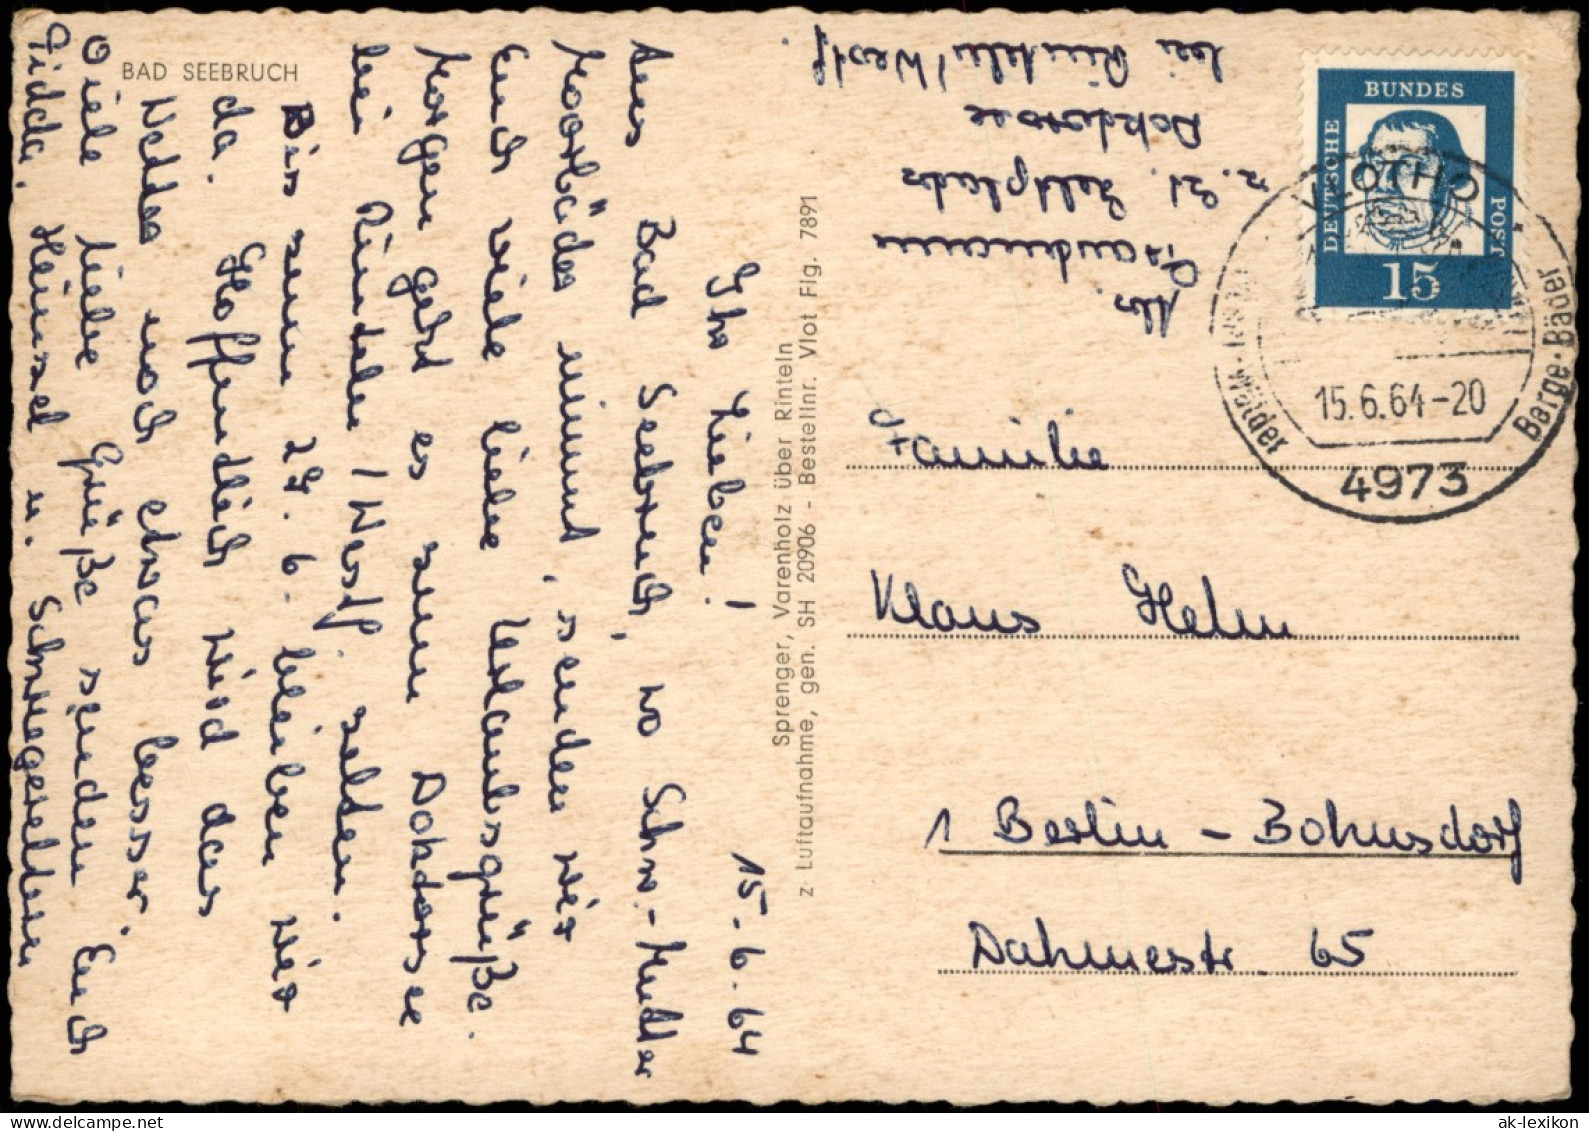 BAD SEEBRUCH
15.6.64
Ihr Lieben!
Aus Bad Seebruch, wo Schw.-Mutter
Moorbäder nimmt, senden wir
Euch viele liebe Urlaubsgrüße.
Morgen geht es zum Doktorsee
bei Rinteln/Westf. zelten.
Bis zum 29.6. bleiben wir
da. Hoffentlich wird das
Wetter noch etwas besser.
Viele liebe Grüße senden Euch
Heinzel u. Schwiegereltern
Sprenger, Varenholz über Rinteln
z Luftaufnahme, gen. SH 20906 - Bestellnr. Vlot Flg. 7891
Abs.
z. Zt. Zeltplatz
Doktorsee
bei Rinteln/Westf.
DEUTSCHE
BUNDES
POST
15
VLOTHO
15.6.64-20
Wälder
Berge·Bäder
4973
Familie
Klaus Helm
1 Berlin - Bohnsdorf
Dahmestr. 65
ak-lexikon